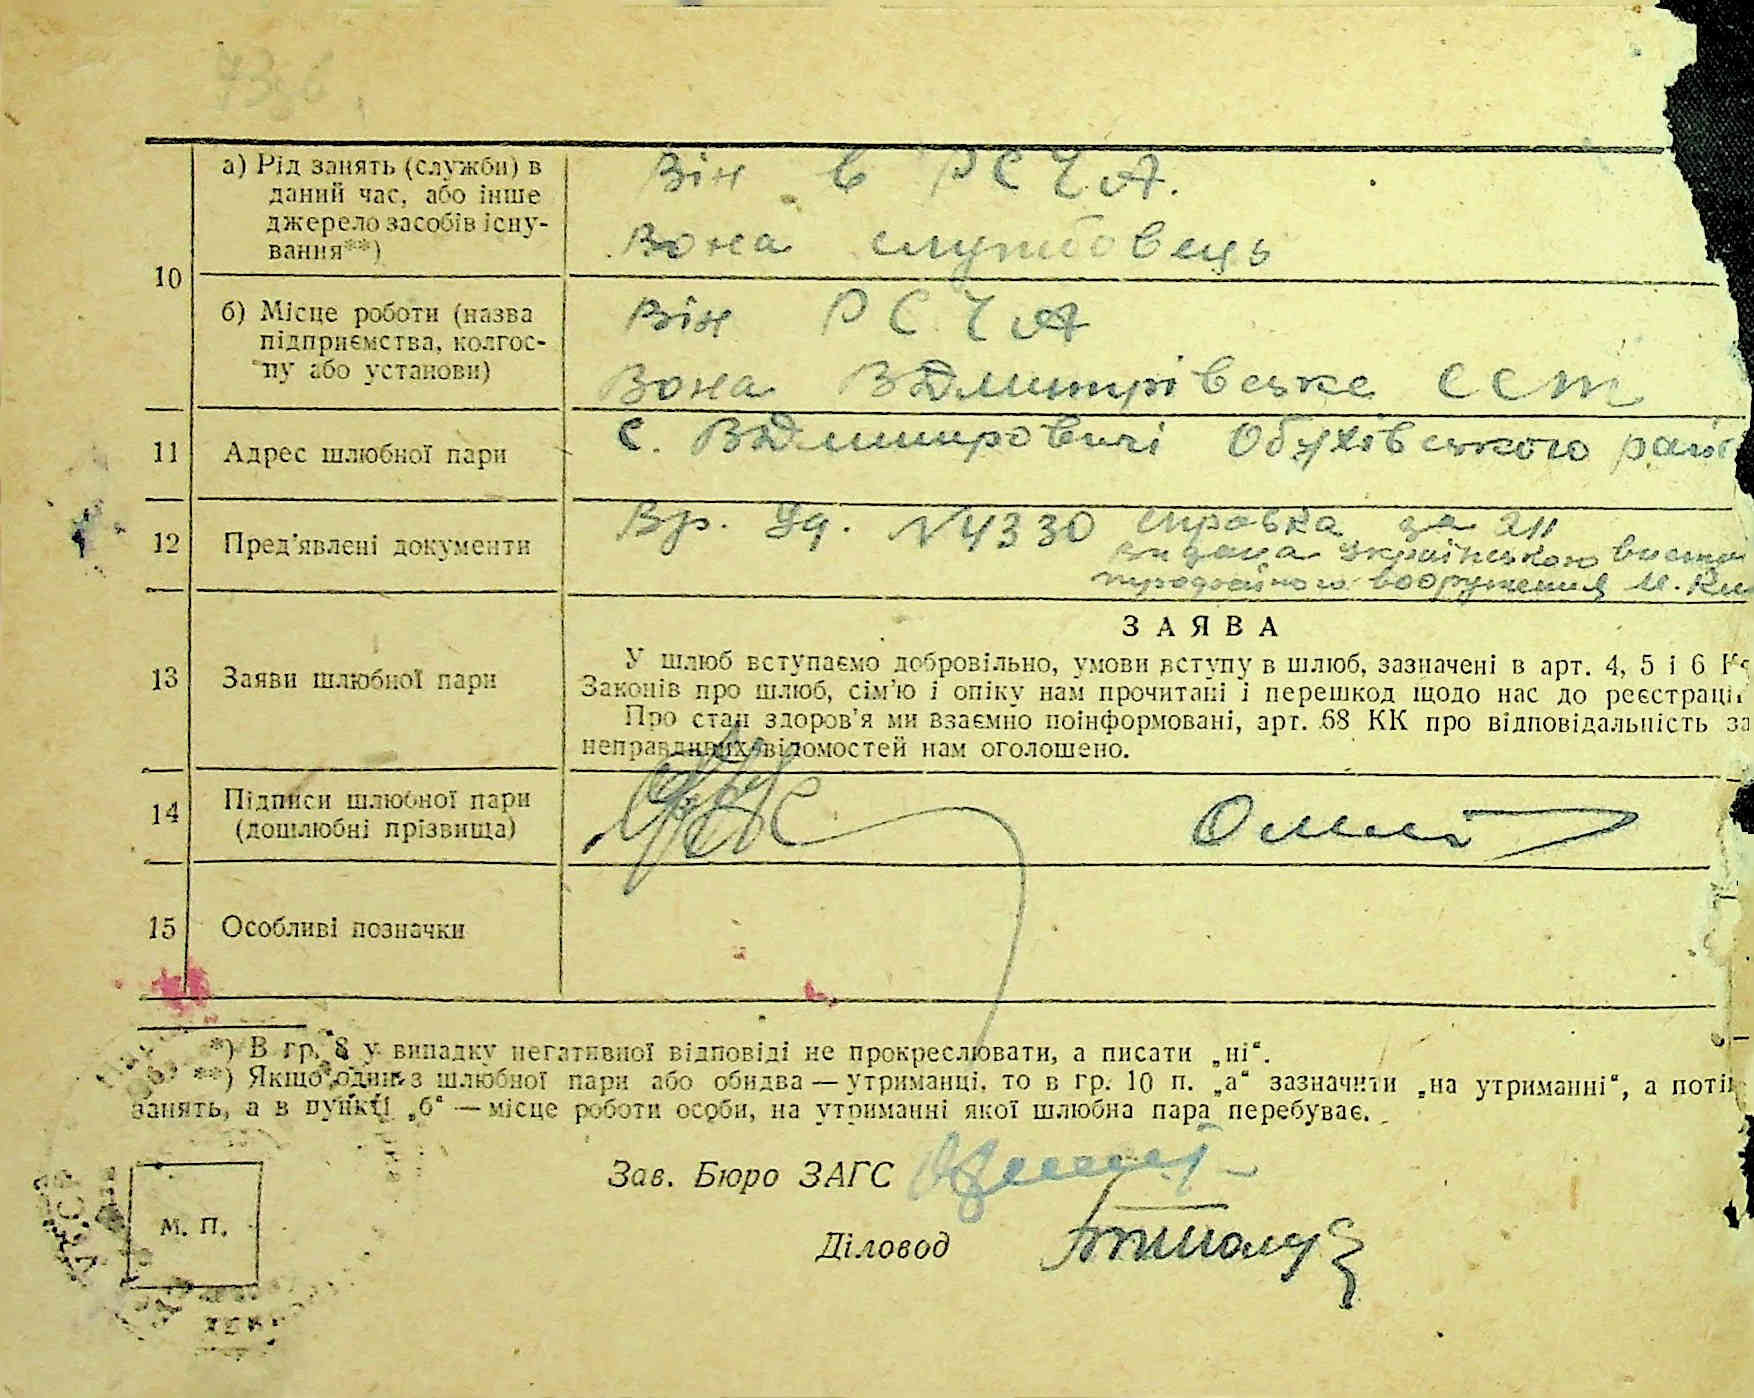 а) Рід занять (служби) в
даний час, або інше
джерело засобів існу-
вання**)
Він в РСЧА.
Вона службовець
10
б) Місце роботи (назва
підприємства, колгос-
пу або установи)
Він РСЧА
Вона ВДмитрівське ССТ
11 Адрес шлюбної пари
с. ВДмитровичі Обухівського рай
12 Пред'явлені документи
Вр. уд. N4330 справка за 211
видана Українською
вооружения м. Ки
13 Заяви шлюбної пари
ЗАЯВА
У шлюб вступаємо добровільно, умови вступу в шлюб, зазначені в арт. 4, 5 і 6 К
Законів про шлюб, сім'ю і опіку нам прочитані і перешкод щодо нас до реєстрації
Про стан здоров'я ми взаємно поінформовані, арт. 68 КК про відповідальність за
неправдивих відомостей нам оголошено.
14 Підписи шлюбної пари
(дошлюбні прізвища)
15 Особливі позначки
*) В гр. 8 у випадку негативної відповіді не прокреслювати, а писати „ні“.
**) Якщо один з шлюбної пари або обидва — утриманці, то в гр. 10 п. „а“ зазначити „на утриманні“, а поті
занять, а в пункті „б“ — місце роботи особи, на утриманні якої шлюбна пара перебуває.
Зав. Бюро ЗАГС
М. П.
Діловод